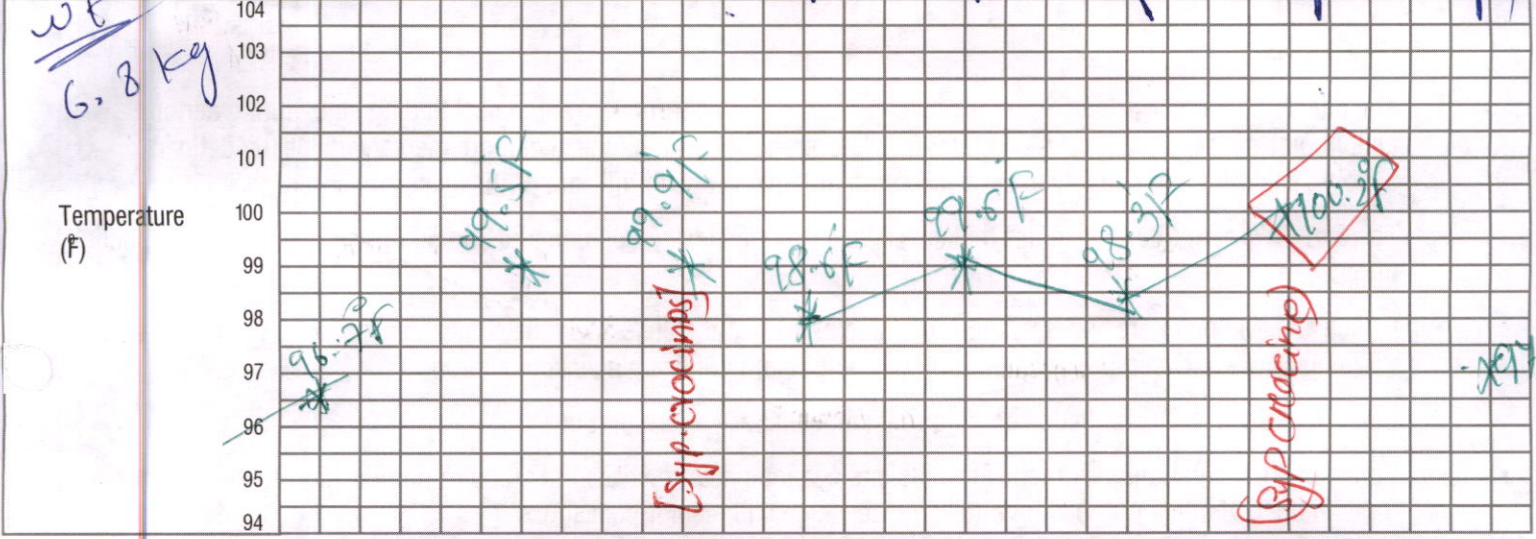 wt
6.8 kg
Temperature
(°F)
104
103
102
101
100
99
98
97
96
95
94
96.7°f
99.5°F
99.9°F
[Syp.crocinos]
98.6°F
99.6°F
98.3°F
100.2°f